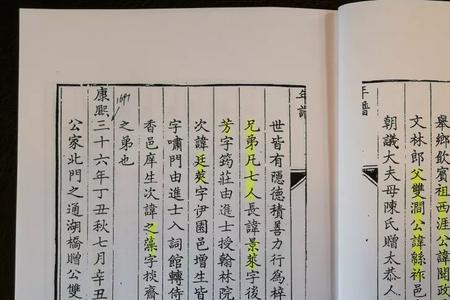 舉鄉飲賓祖西涯公諱闓政
文林郎父雙澗公諱繇祚邑
朝議大夫母陳氏贈太恭人
年譜
年譜
世皆有隱德積善力行為梓
兄弟凡七人長諱景萊字後
芳字筠莊由進士授翰林院
次諱廷英字伊園邑增生皆
字嘯門由進士入詞館轉侍
香邑庠生次諱之藻字掞齋
之弟也
1697
康熙三十六年丁丑秋七月辛丑
公家北門之通湖橋贈公雙